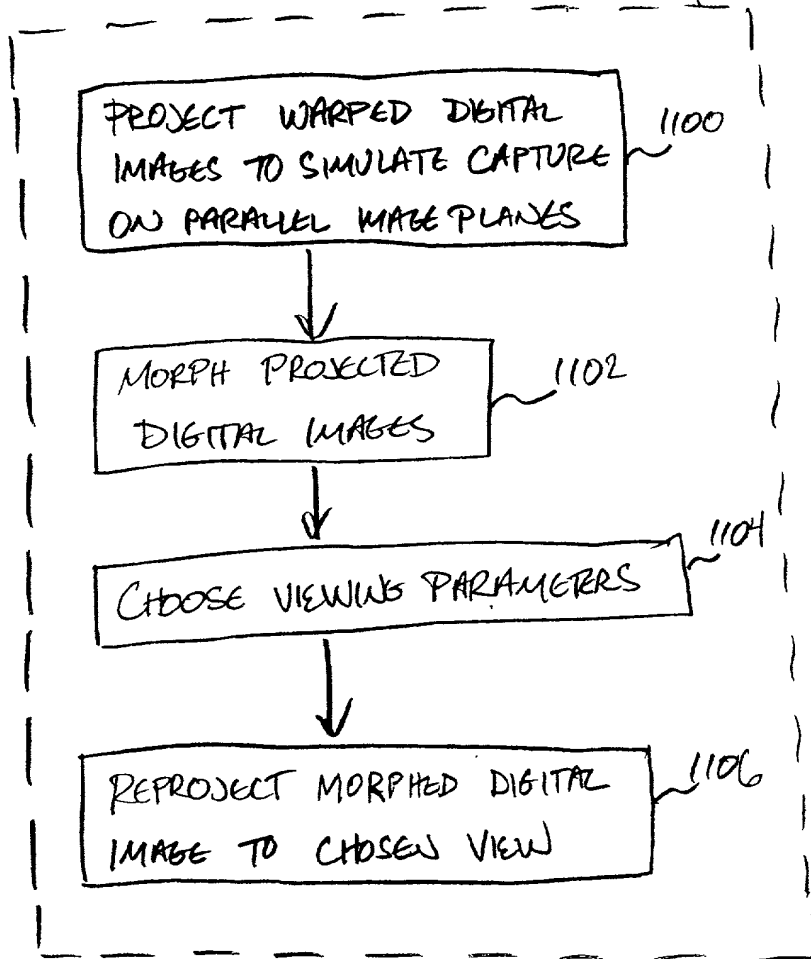 PROJECT WARPED DIGITAL
IMAGES TO SIMULATE CAPTURE
ON PARALLEL IMAGE PLANES
1100
MORPH PROJECTED
DIGITAL IMAGES
1102
CHOOSE VIEWING PARAMETERS
1104
REPROJECT MORPHED DIGITAL
IMAGE TO CHOSEN VIEW
1106